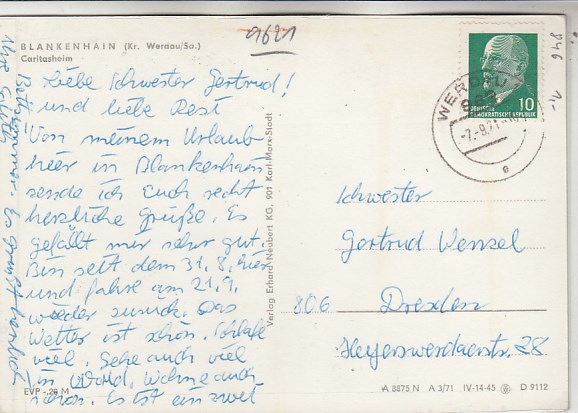 9621
BLANKENHAIN (Kr. Werdau/Sa.)
Caritasheim
Liebe Schwester Gertrud!
und liebe Resi
Von meinem Urlaub
hier in Blankenhain
sende ich Euch recht
herzliche Grüße. Es
gefällt mir sehr gut.
Bin seit dem 31.8. hier
und fahre am 21.9.
wieder zurück. Das
Wetter ist schön. Schlafe
viel. Gehe auch viel
in Wald. Wohne auch
schön. Es ist ein zwei
Bettzimmer. Es grüßt herzlich
EVP -,20 M
Verlag Erhard Neubert KG, 901 Karl-Marx-Stadt
10
DEUTSCHE
DEMOKRATISCHE REPUBLIK
WERDAU
-7.-9.71
e
846
1,-
Schwester
Gertrud Wenzel
806 Dresden
Hoyerswerdaerstr. 28
A 8875 N A 3/71 IV-14-45 D 9112